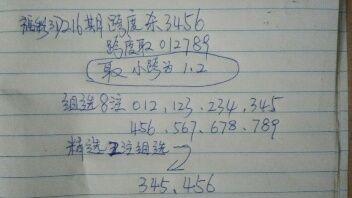 福彩3D216期跨度杀3456
跨度取012789
取小跨为1.2
组选8注012,123,234,345
456,567,678,789
精选2注组选
345,456